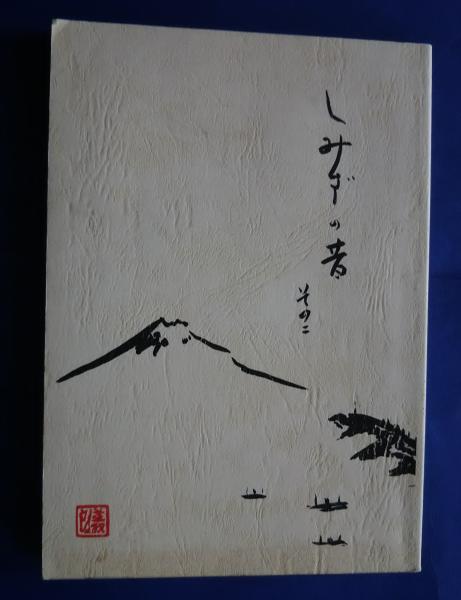 しみずの昔
その二